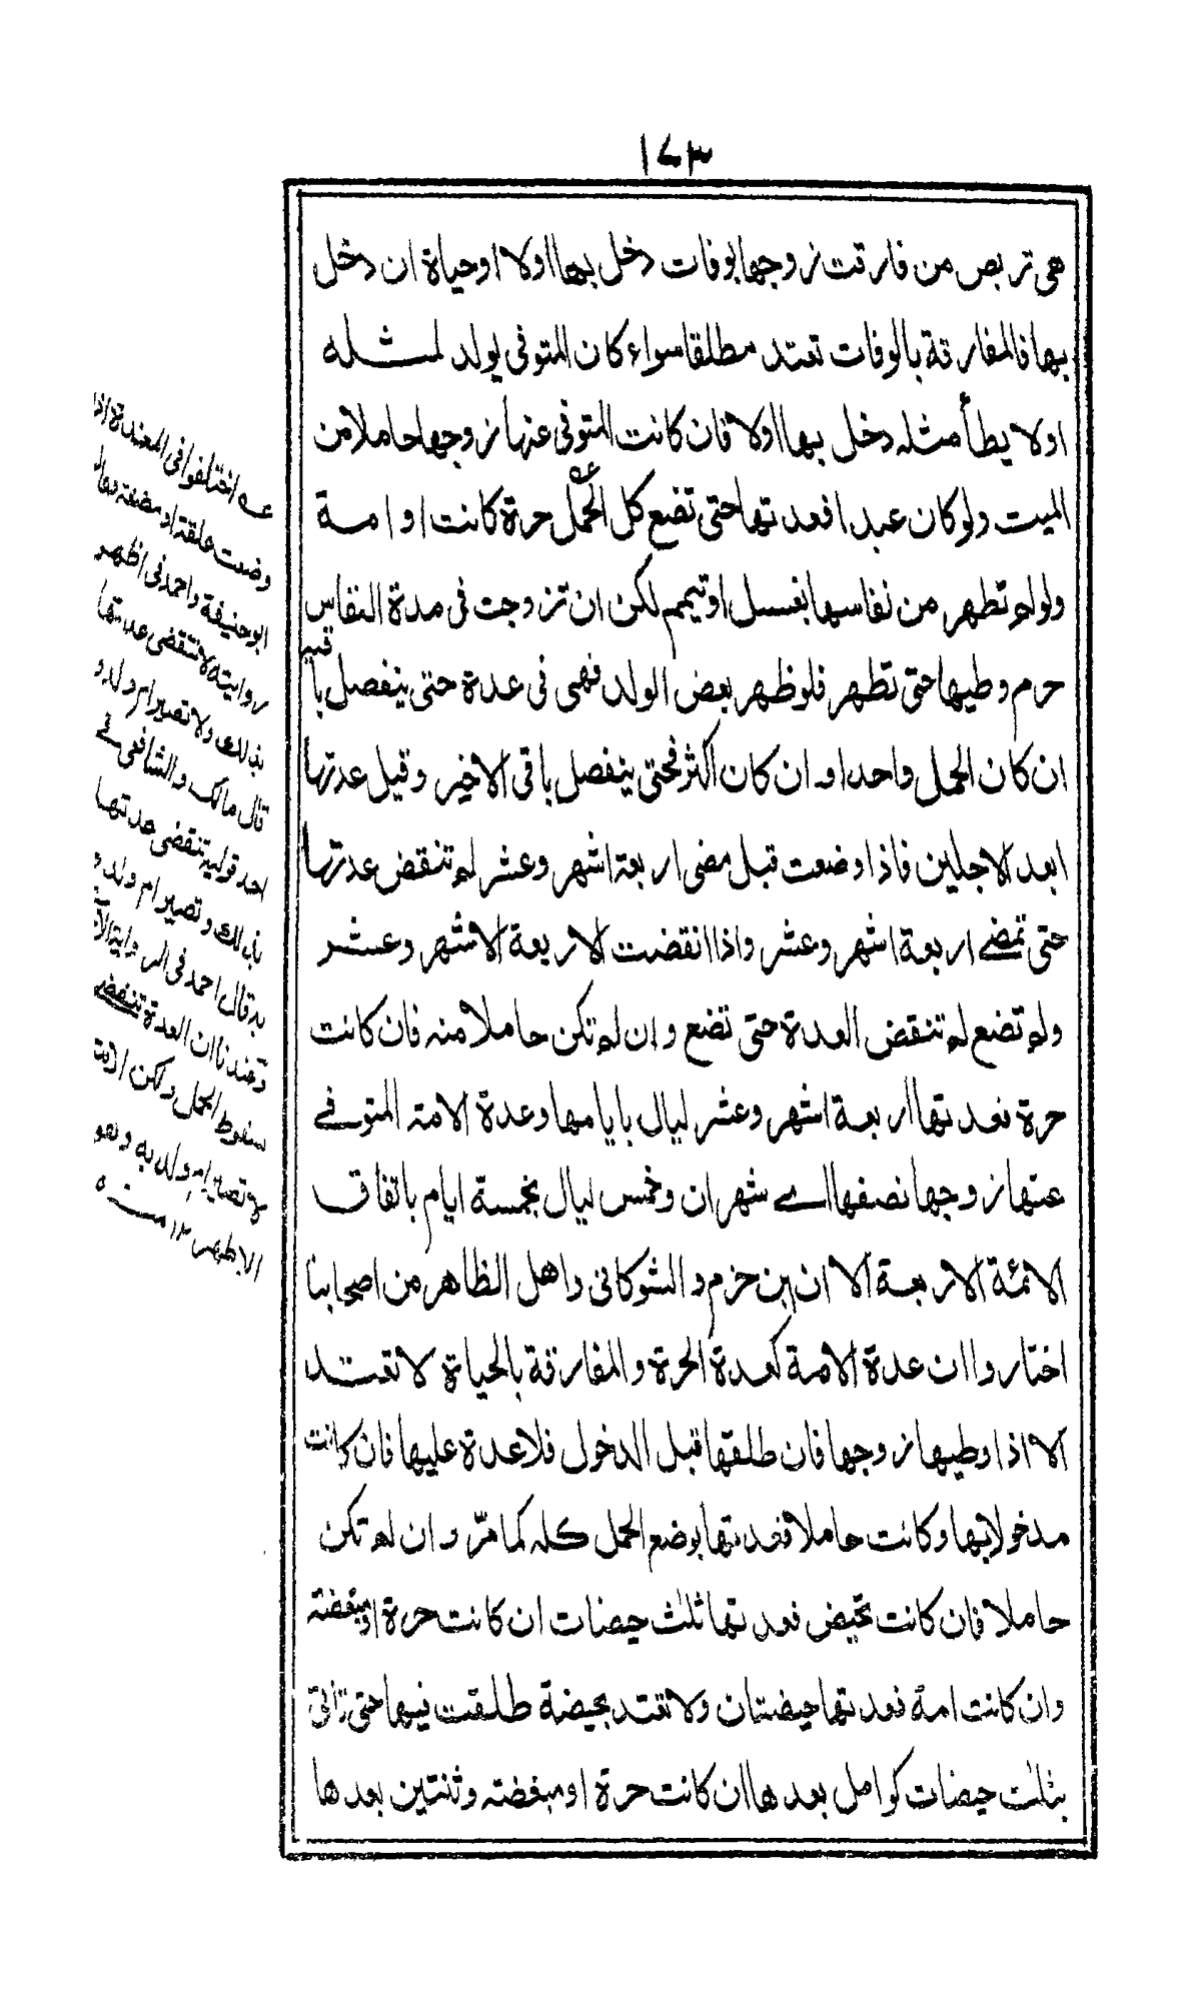 ١٧٣
هي تربص من فارقت زوجها بوفات دخل بها اولا او حياة ان دخل
بها فالمفارقة بالوفات تعتد مطلقا سواء كان المتوفى يولد لمثله
اولا يطأ مثله دخل بها اولا فان كانت المتوفى عنها زوجها حاملا من
الميت ولو كان عبدا فعدتها حتى تضع كل الحمل حرة كانت او امة
ولو لم تطهر من نفاسها بغسل او تيمم لكن ان تزوجت فى مدة النفاس
حرم وطيها حتى تطهر فلو ظهر بعض الولد فهى فى عدة حتى ينفصل باقيه
ان كان الحمل واحدا و ان كان اكثر فحتى ينفصل باقى الاخير وقيل عدتها
ابعد الاجلين فاذا وضعت قبل مضى اربعة اشهر وعشر لم تنقض عدتها
حتى تمضے اربعة اشهر وعشر واذا انقضت الاربعة الاشهر وعشر
ولم تضع لم تنقض العدة حتى تضع و ان لم تكن حاملا منه فان كانت
حرة فعدتها اربعة اشهر وعشر ليال بايامها وعدة الامة المتوفے
عنها زوجها نصفها اے شهران وخمس ليال بخمسة ايام باتفاق
الائمة الاربعة الا ان ابن حزم و الشوكانى و اهل الظاهر من اصحابنا
اختاروا ان عدة الامة كعدة الحرة و المفارقة بالحياة لا تعتد
الا اذا وطيها زوجها فان طلقها قبل الدخول فلا عدة عليها فان كانت
مدخولا بها وكانت حاملا فعدتها بوضع الحمل كله كما مرّ و ان لم تكن
حاملا فان كانت تحيض فعدتها ثلث حيضات ان كانت حرة او مبعضة
وان كانت امة فعدتها حيضتان ولا تعتد بحيضة طلقت فيها حتى تاتى
بثلث حيضات كوامل بعدها ان كانت حرة او مبعضة وثنتين بعدها
عه اختلفوا فى المعتدة اذا
وضعت علقة او مضغة فقال
ابو حنيفة واحمد فى اظهر
روايته لا تنقضى عدتها
بذلك ولا تصير ام ولد و
قال مالك والشافعى فے
احد قوليه تنقضى عدتها
بذلك و تصير ام ولد و
به قال احمد فى الرواية
وعندنا ان العدة تنقضى
سقوط الحمل ولكن الامة
لا تصير ام ولد به وهو
الاظهر ١٢ منه